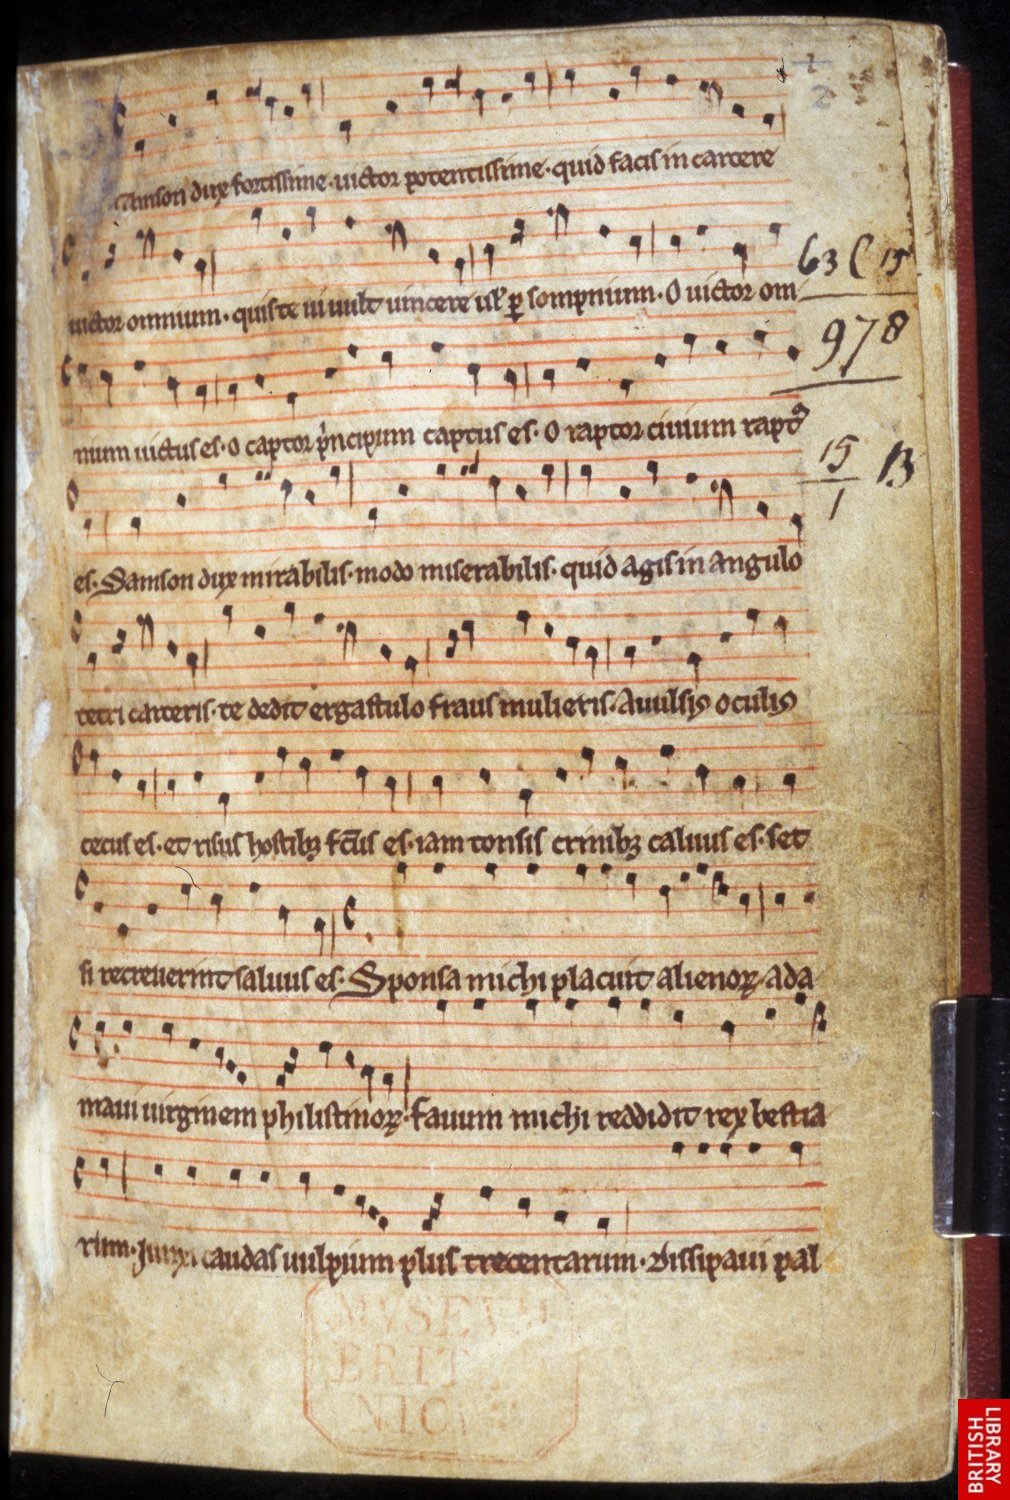 1
2
Samson dux fortissime · uictor potentissime · quid facis in carcere
uictor omnium · quis te ui uult uincere ul' ꝑ sompnium · O uictor om
63 C 15
978
nium uictus es · o captor p'ncipum captus es · O raptor ciuium rapt'
15
1
13
es · Samson dux mirabilis · modo miserabilis · quid agis in angulo
tetri carceris · te dedit ergastulo fraus mulieris · Auulsis oculis
cecus es · et risus hostibꝫ fc̄us es · iam tonsis crinibꝫ caluus es · set
si recreuerint saluus es · Sponsa michi placuit alienoꝝ · ada
maui uirginem philistinoꝝ · fauum michi reddidit rex bestia
rum · Junxi caudas uulpium plus trecentarum · Dissipaui pal
MVSEVM
BRITAN
NICVM
BRITISH
LIBRARY